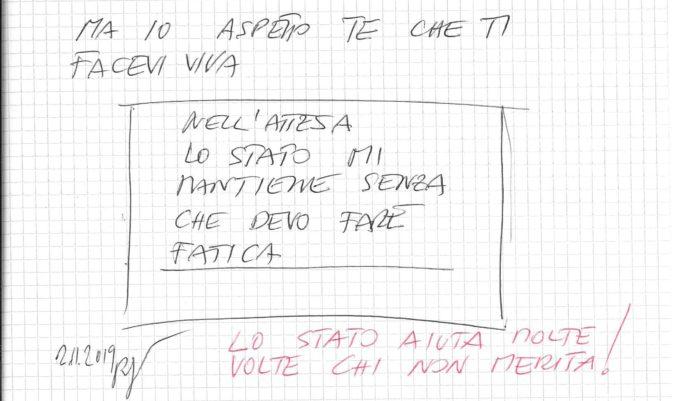 MA IO ASPETTO TE CHE TI
FACEVI VIVA
NELL'ATTESA
LO STATO MI
MANTIENE SENZA
CHE DEVO FARE
FATICA
2.11.2019
LO STATO AIUTA MOLTE
VOLTE CHI NON MERITA!